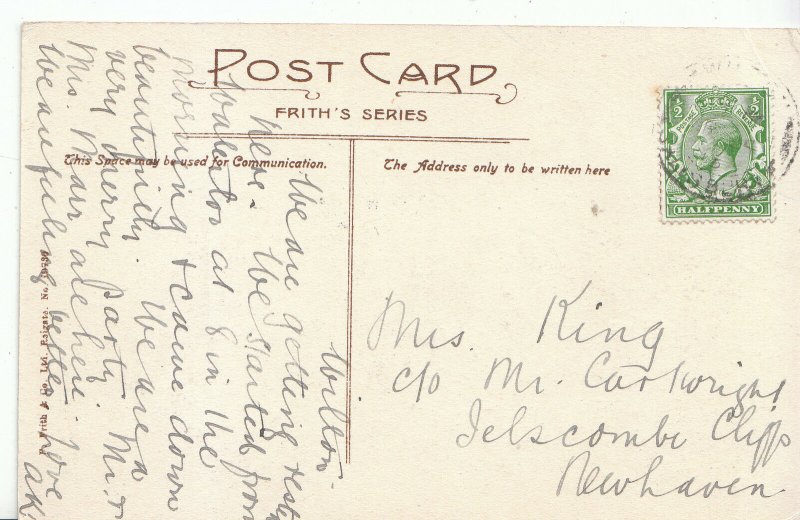 POST CARD
FRITH'S SERIES
This Space may be used for Communication.
The Address only to be written here
½ ½
POSTAGE
HALFPENNY
Wilton.
We are getting
here. We started from
Waterloo at 8 in the
Morning & came down
beautifully. We are a
very merry Party. Mr &
Mrs. Marr are here.
We are feeling better. Love
AK
Mrs. King
c/o Mr. Cartwright
Telscombe Cliffs
Newhaven.
Frith & Co. Ltd. Reigate. No.